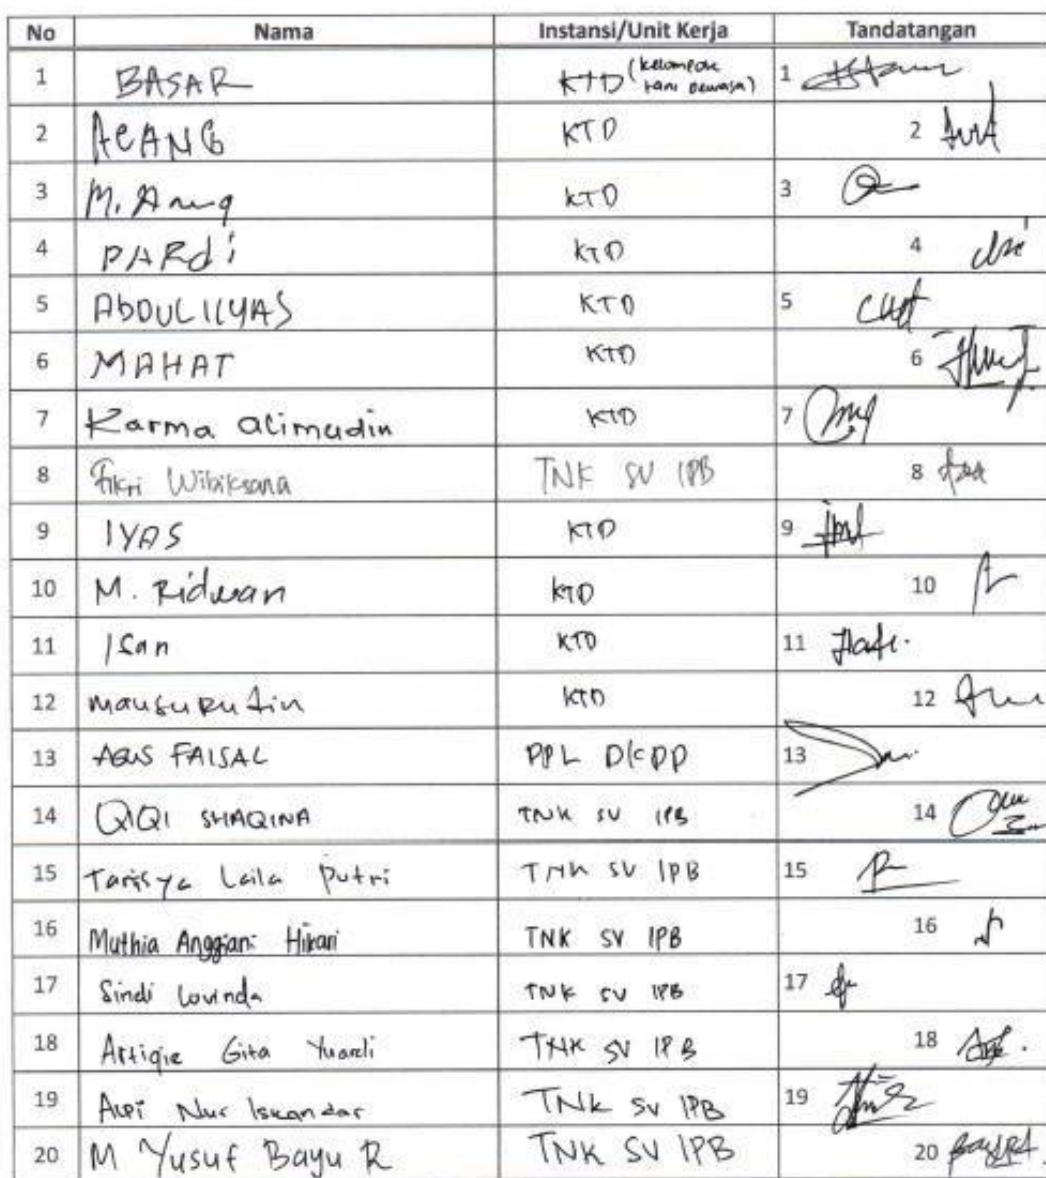 No Nama Instansi/Unit Kerja Tandatangan
1 BASAR KTD (kelompok tani dewasa) 1
2 ACANG KTD 2
3 M. KTD 3
4 PARdi KTD 4
5 AbDUL ILYAS KTD 5
6 MAHAT KTD 6
7 Karma alimudin KTD 7
8 Fikri Wibiksana TNK SV IPB 8
9 IYAS KTD 9
10 M. Ridwan KTD 10
11 KTD 11
12 KTD 12
13 AGUS FAISAL PPL DKPP 13
14 QIQI SHAQINA TNK SV IPB 14
15 Tarisya Laila Putri TNK SV IPB 15
16 Muthia Anggiani Hikari TNK SV IPB 16
17 Sindi Lovinda TNK SV IPB 17
18 Gita Yuardi TNK SV IPB 18
19 Nur Iskandar TNK SV IPB 19
20 M Yusuf Bayu R TNK SV IPB 20